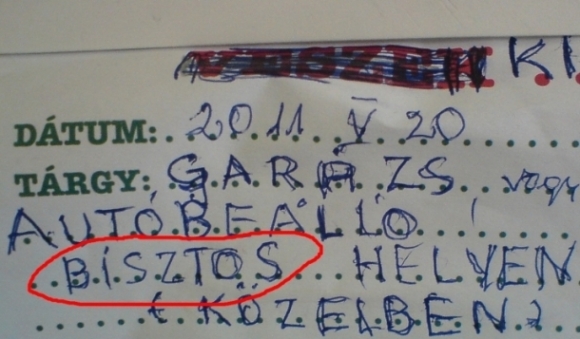 KI
DÁTUM: 2011 V 20
TÁRGY: GARÁZS vagy
AUTÓBEÁLLÓ
BÍSZTOS HELYEN
(KÖZELBEN)